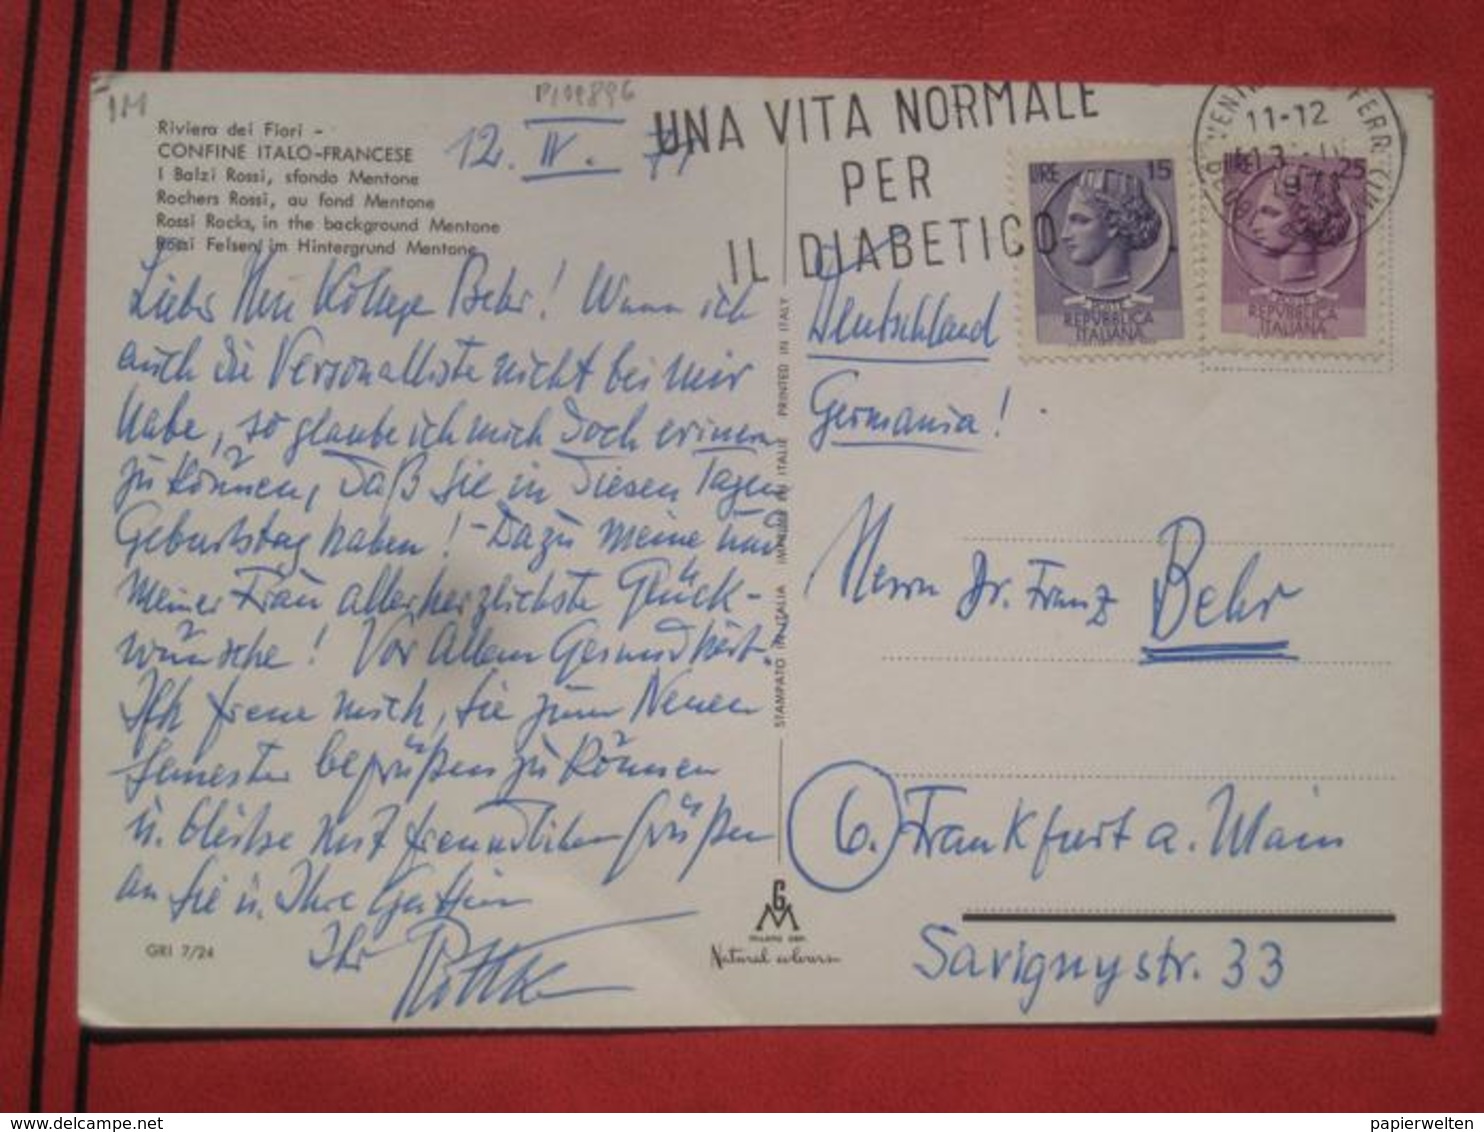 1M
P109896
Riviera dei Fiori -
CONFINE ITALO-FRANCESE
I Balzi Rossi, sfondo Mentone
Rochers Rossi, au fond Mentone
Rossi Rocks, in the background Mentone
Rossi Felsen, im Hintergrund Mentone
12. IV. 71
Lieber Herr Kollege Behr! Wenn ich
auch die Personalliste nicht bei mir
habe, so glaube ich mich doch erinnern
zu können, daß Sie in diesen Tagen
Geburtstag haben! - Dazu meine und
meiner Frau allerherzlichste Glück-
wünsche! Vor Allem Gesundheit.
Ich freue mich, Sie zum Neuen
Semester begrüßen zu können
u. bleibe mit freundlichen Grüßen
an Sie u. Ihre Gattin
Ihr
GRI 7/24
STAMPATO IN ITALIA IMPRIMÉ EN ITALIE PRINTED IN ITALY
GM
MILANO
Natural colours
UNA VITA NORMALE
PER
IL DIABETICO
11-12
LIRE 15
REPVBBLICA
ITALIANA
LIRE 25
REPVBBLICA
ITALIANA
Deutschland
Germania!
Herrn Dr. Franz Behr
6. Frankfurt a. Main
Savignystr. 33
delcampe.net
papierwelten